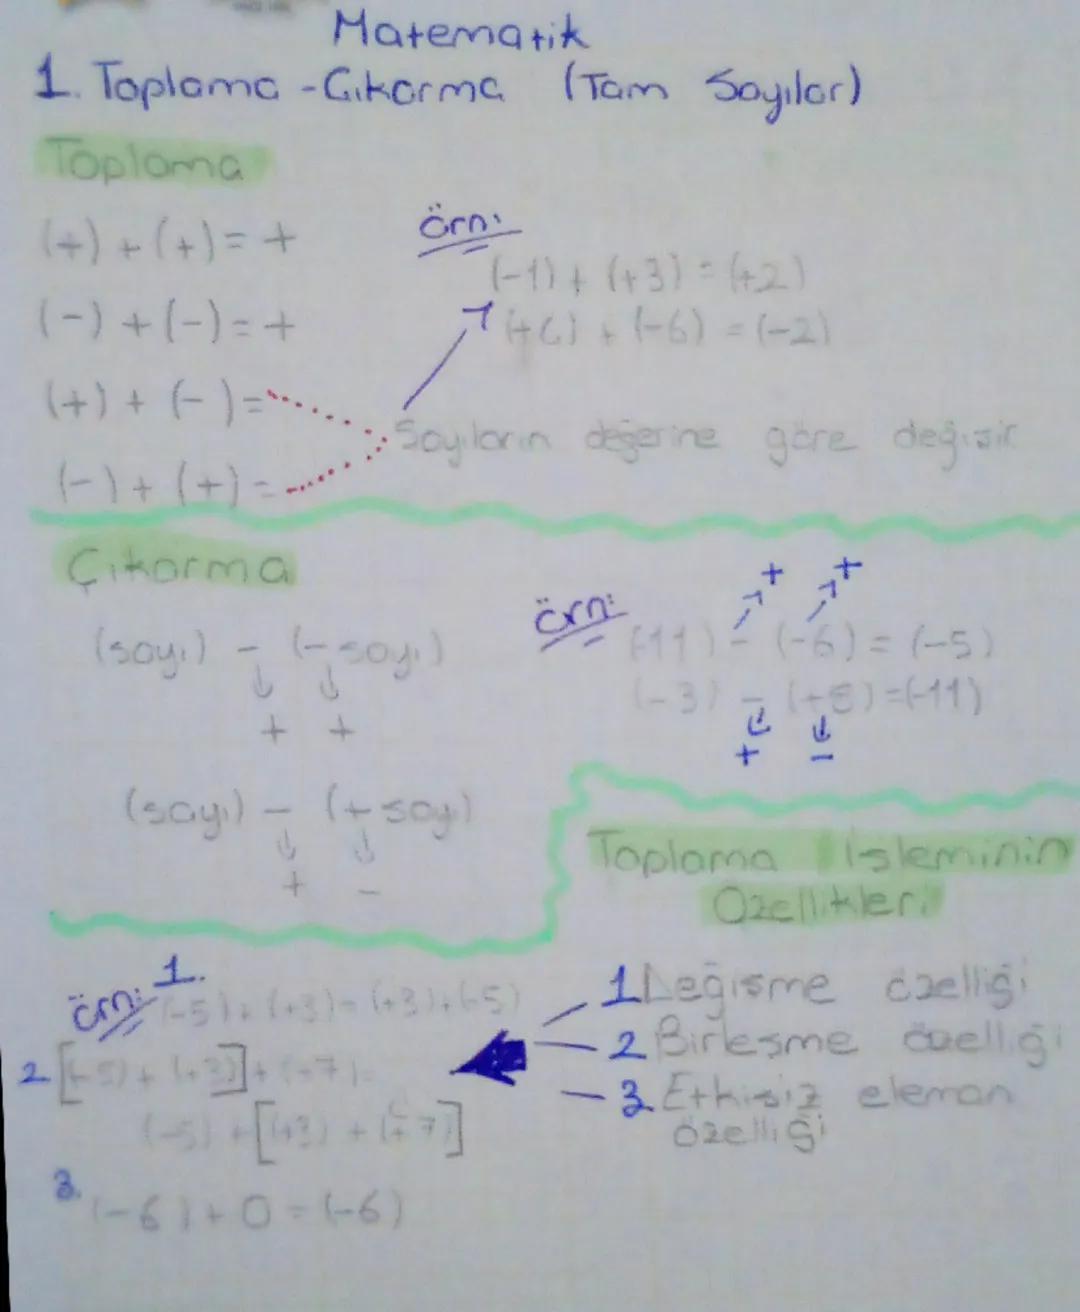 Matematik
1. Toplama - Çıkarma (Tam Sayılar)
Toplama
(+) + (+) = +
(-) + (-) = +
(+) + (-) =
(-) + (+) =
Örn:
(-1) + (+3) = (+2)
+ (-6) = (-2)
Sayıların değerine göre değişir
Çıkarma
(sayı) - (- sayı)
+ +
(sayı) - (+ sayı)
+ -
Örn:
+ +
(-11) - (-6) = (-5)
(-3) - (+8) = (-11)
+ -
Toplama İşleminin
Özellikleri
1 Değişme özelliği
2 Birleşme özelliği
3 Etkisiz eleman
özelliği
Örn: 1.
(-5) + (+3) = (+3) + (-5)
2 [(-5) + (+3)] + (+7) =
(-5) + [(+3) + (+7)]
3.
(-6) + 0 = (-6)